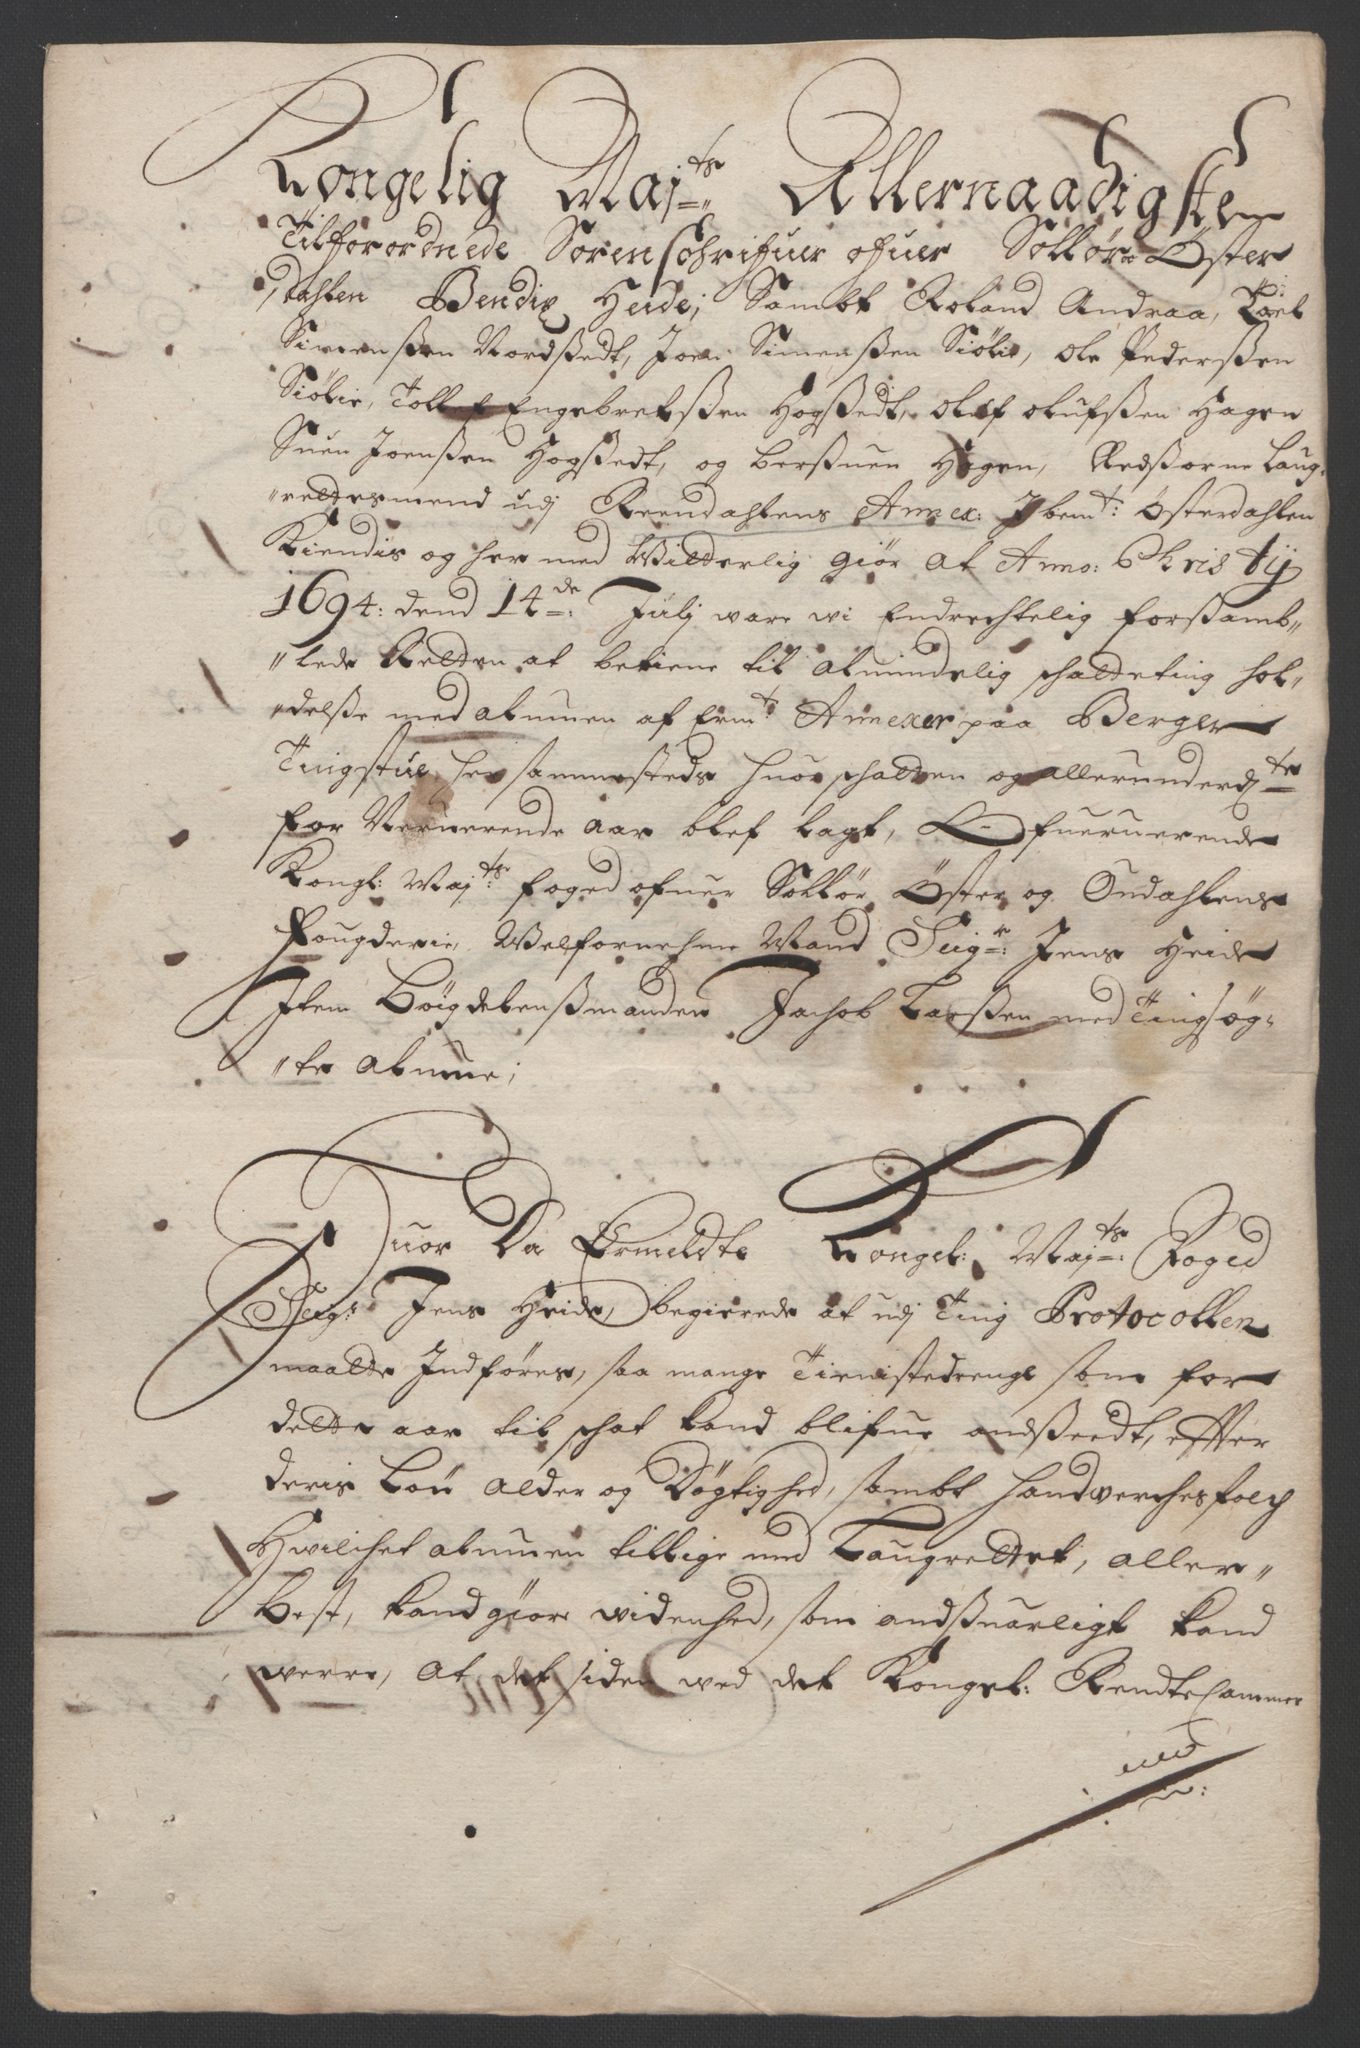 Kongelig Maj:ts Allernaadigste
Tilforordnede Sorenschrifuer ofuer Sollør Øster
dahlen Bendix Heide; Sambt Roland Andraa, Tord
Simenssen Nordssedt, Joen Simenssen Siølie, Ole Pederssen
Siølie, Tollef Engebretssen Hogssedt, Oluf Olufssen Hagen
Suen Joenssen Hogssedt, og Berssuen Hagen, Aedssorne Laug-
rettesmend udj Reendahlens Annex: I bemt: Østerdahlen
Kiendis og her med Witterlig giør at Anno: Christij
1694: dend 14de: Julij ware wi Endrechtelig forssamb-
lede Retten at betiene til Almindelig schatteting hol-
delsse med almuen af Ermt: Annexer paa Berger
Tingstue her sammesteds huor schatten og allerunderd:te
for Neruerende aar blef lagt, Ofueruerende
Kongl: Maj:ts foged ofuer Sollør Øster og Ourdahlens
Fougderie, Welfornehme Mand Seigr: Jens Heide
Item Bøigdelenssmanden Jachob Larssen med Tingsøg-
te Almue;
Huor Da Ermeldte Kongel: Maj:ts Foged
Seigr: Jens Heide, begierede at udj Ting Protocollen
maatte Indføres, saa mange Tienistedrenge som for
dette aar til schat kand blifue andsseedt, effter
deris Løn Alder og Døgtighed, sambt handwerchesfolch
Hwilchet almuen tillige med Laugrettet, aller-
best, kand giøre widenhed, som andssuarligt kand
werre, at det siden ved det Kongel: Rendte Cammer